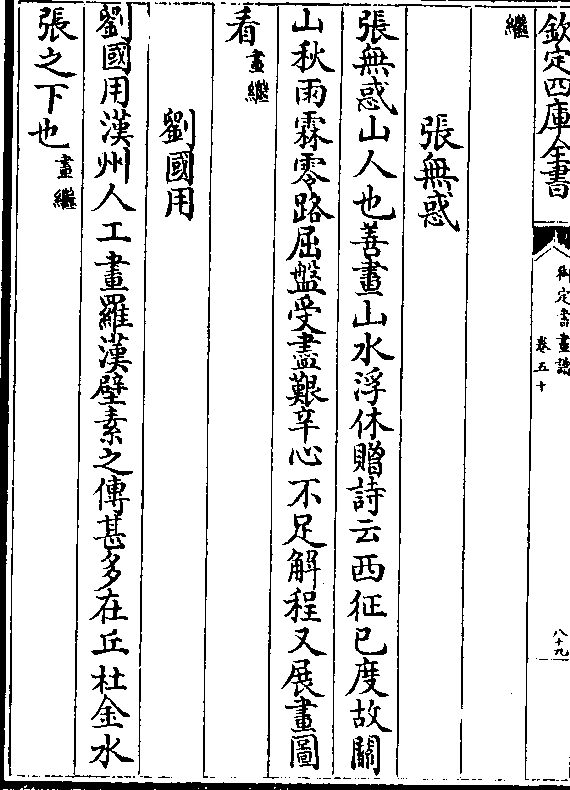 欽定四庫全書
御定書畫譜
卷五十
八十九
繼
張無惑
張無惑山人也善畫山水浮休贈詩云西征已度故關
山秋雨霖零路屈盤受盡艱辛心不足解程又展畫圖
看畫繼
劉國用
劉國用漢州人工畫羅漢壁素之傳甚多在丘杜金水
張之下也畫繼